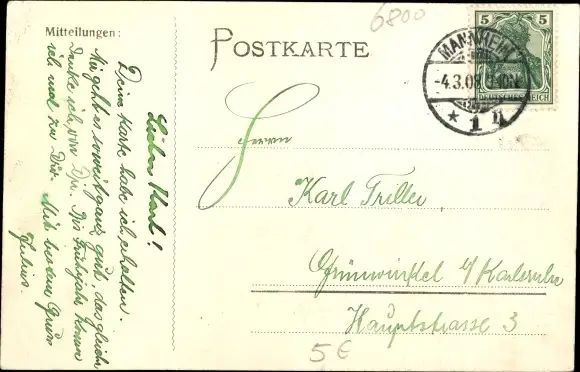 Mitteilungen:
Lieber Karl!
Deine Karte habe ich erhalten.
Mir geht es soweit ganz gut, das gleiche
denke ich von Dir. Bis Frühjahr komm
ich mal zu Dir. Mit besten Gruss
Julius.
6800
POSTKARTE
5 5
DEUTSCHES REICH
MANNHEIM
-4.3.08
* 1
Herrn
Karl Triller
Grünwinkel b/Karlsruhe
Hauptstrasse 3
5 €